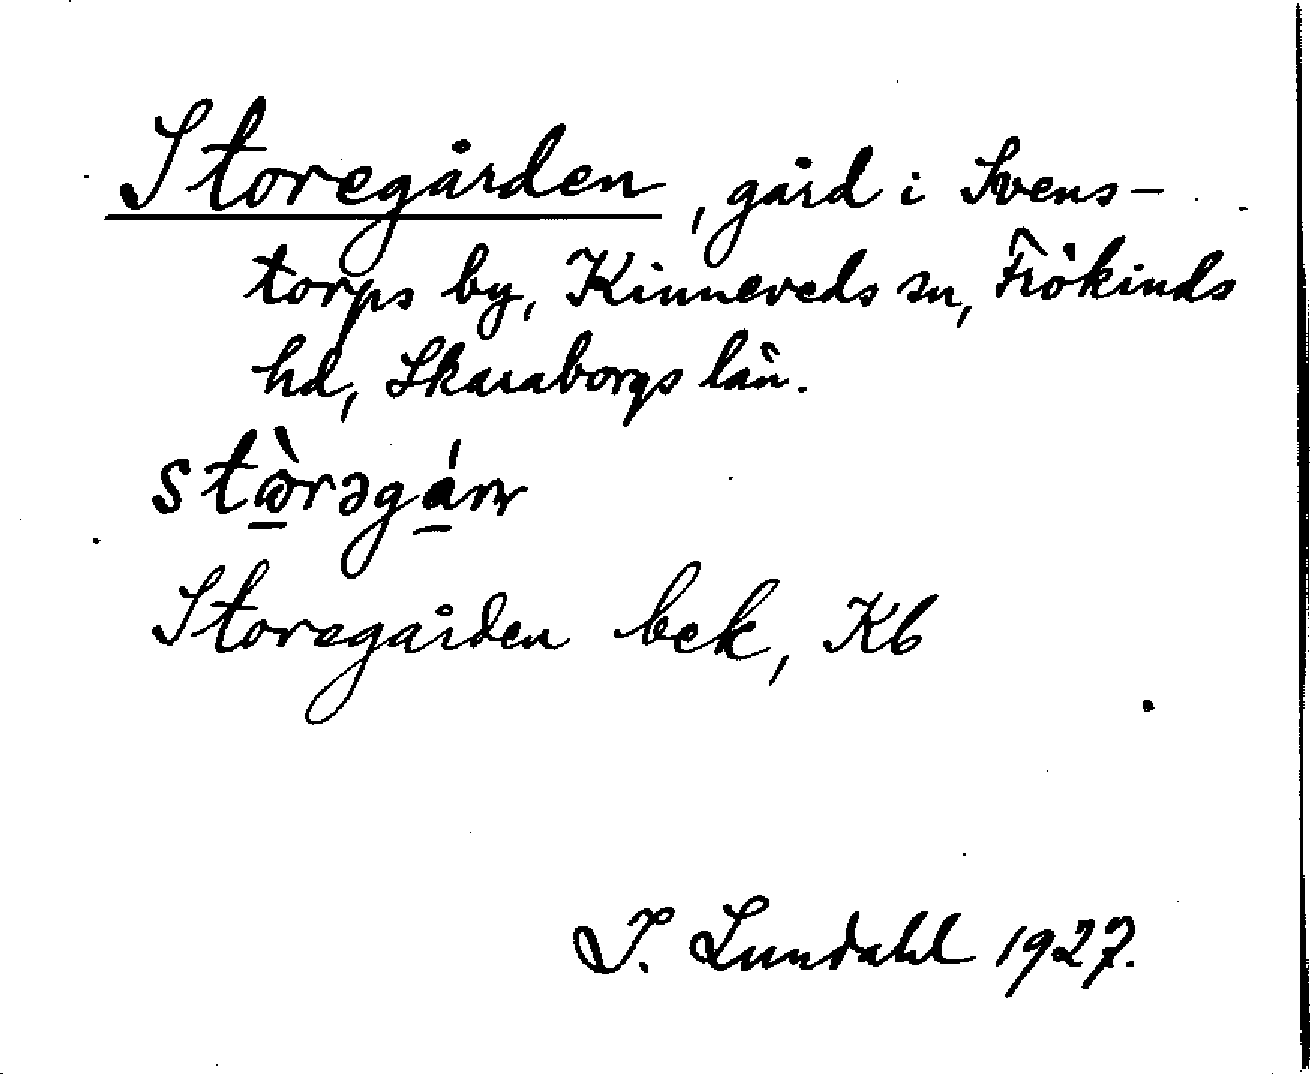 Storegården, gård i Svens-
torps by, Kinneveds sn, Frökinds
hd, Skaraborgs län.
Storegården bek, Kb
I. Lundahl 1927.